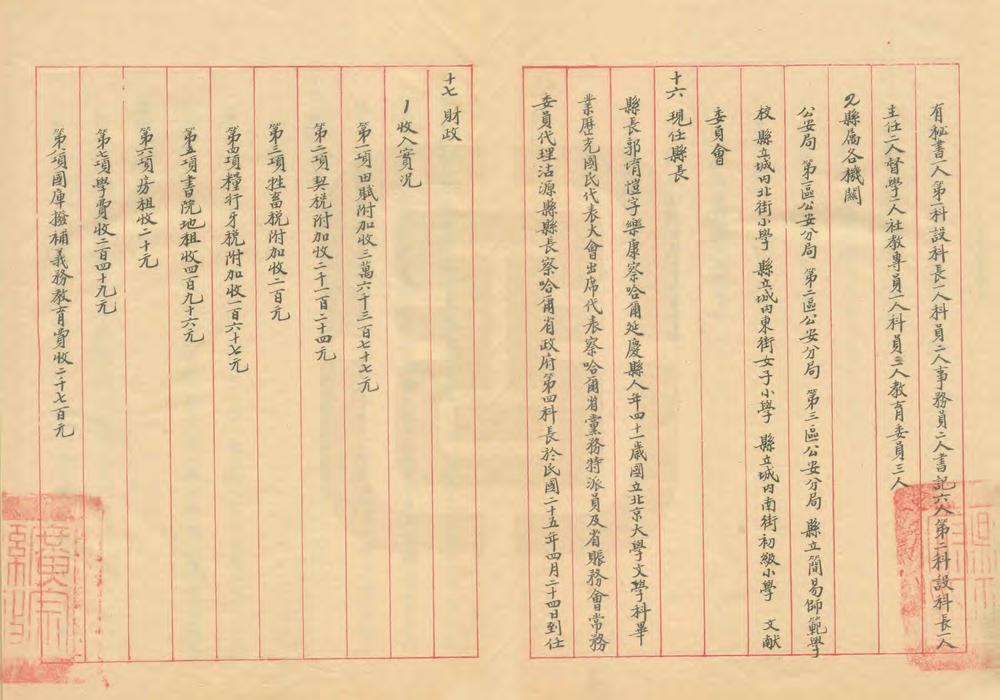 有秘書一人第一科設科長一人科員二人事務員二人書記六人第二科設科長一人
主任二人督學一人社教專員一人科員三人教育委員三人
2縣屬各機關
公安局 第一區公安分局 第二區公安分局 第三區公安分局 縣立簡易師範學
校 縣立城内北街小學 縣立城内東街女子小學 縣立城内南街初級小學 文獻
委員會
十六 現任縣長
縣長郭堉愷字樂康察哈爾延慶縣人年四十一歲國立北京大學文學科畢
業歷充國民代表大會出席代表察哈爾省黨務特派員及省賬務會常務
委員代理沽源縣縣長察哈爾省政府第四科長於民國二十五年四月二十四日到任
十七 財政
1收入實況
第一項田賦附加收三萬六千三百七十七元
第二項契稅附加收二千一百二十四元
第三項牲畜稅附加收二百元
第四項糧行牙稅附加收一百六十七元
第五項書院地租收四百九十六元
第六項房租收二十元
第七項學費收二百四十九元
第八項國庫撥補義務教育費收二千七百元